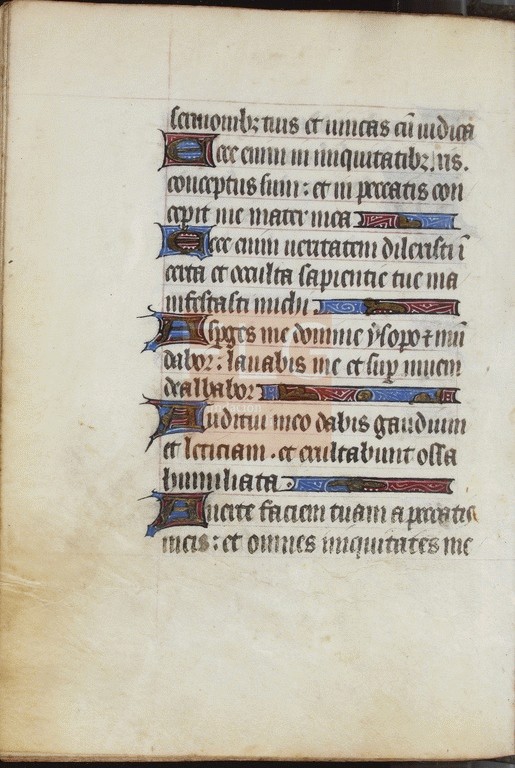 sermonibꝫ tuis et uincas cū iudica
Ecce enim in iniquitatibꝫ
conceptus sum : et in peccatis con
cepit me mater mea
Ecce enim ueritatem dilexisti ī
certa et occulta sapientie tue ma
nifestasti michi
Asperges me domine ysopo ⁊ mū
dabor : lauabis me et sup niuem
dealbabor
Auditui meo dabis gaudium
et leticiam . et exultabunt ossa
humiliata
Auerte faciem tuam a peccatis
meis : et omnes iniquitates me